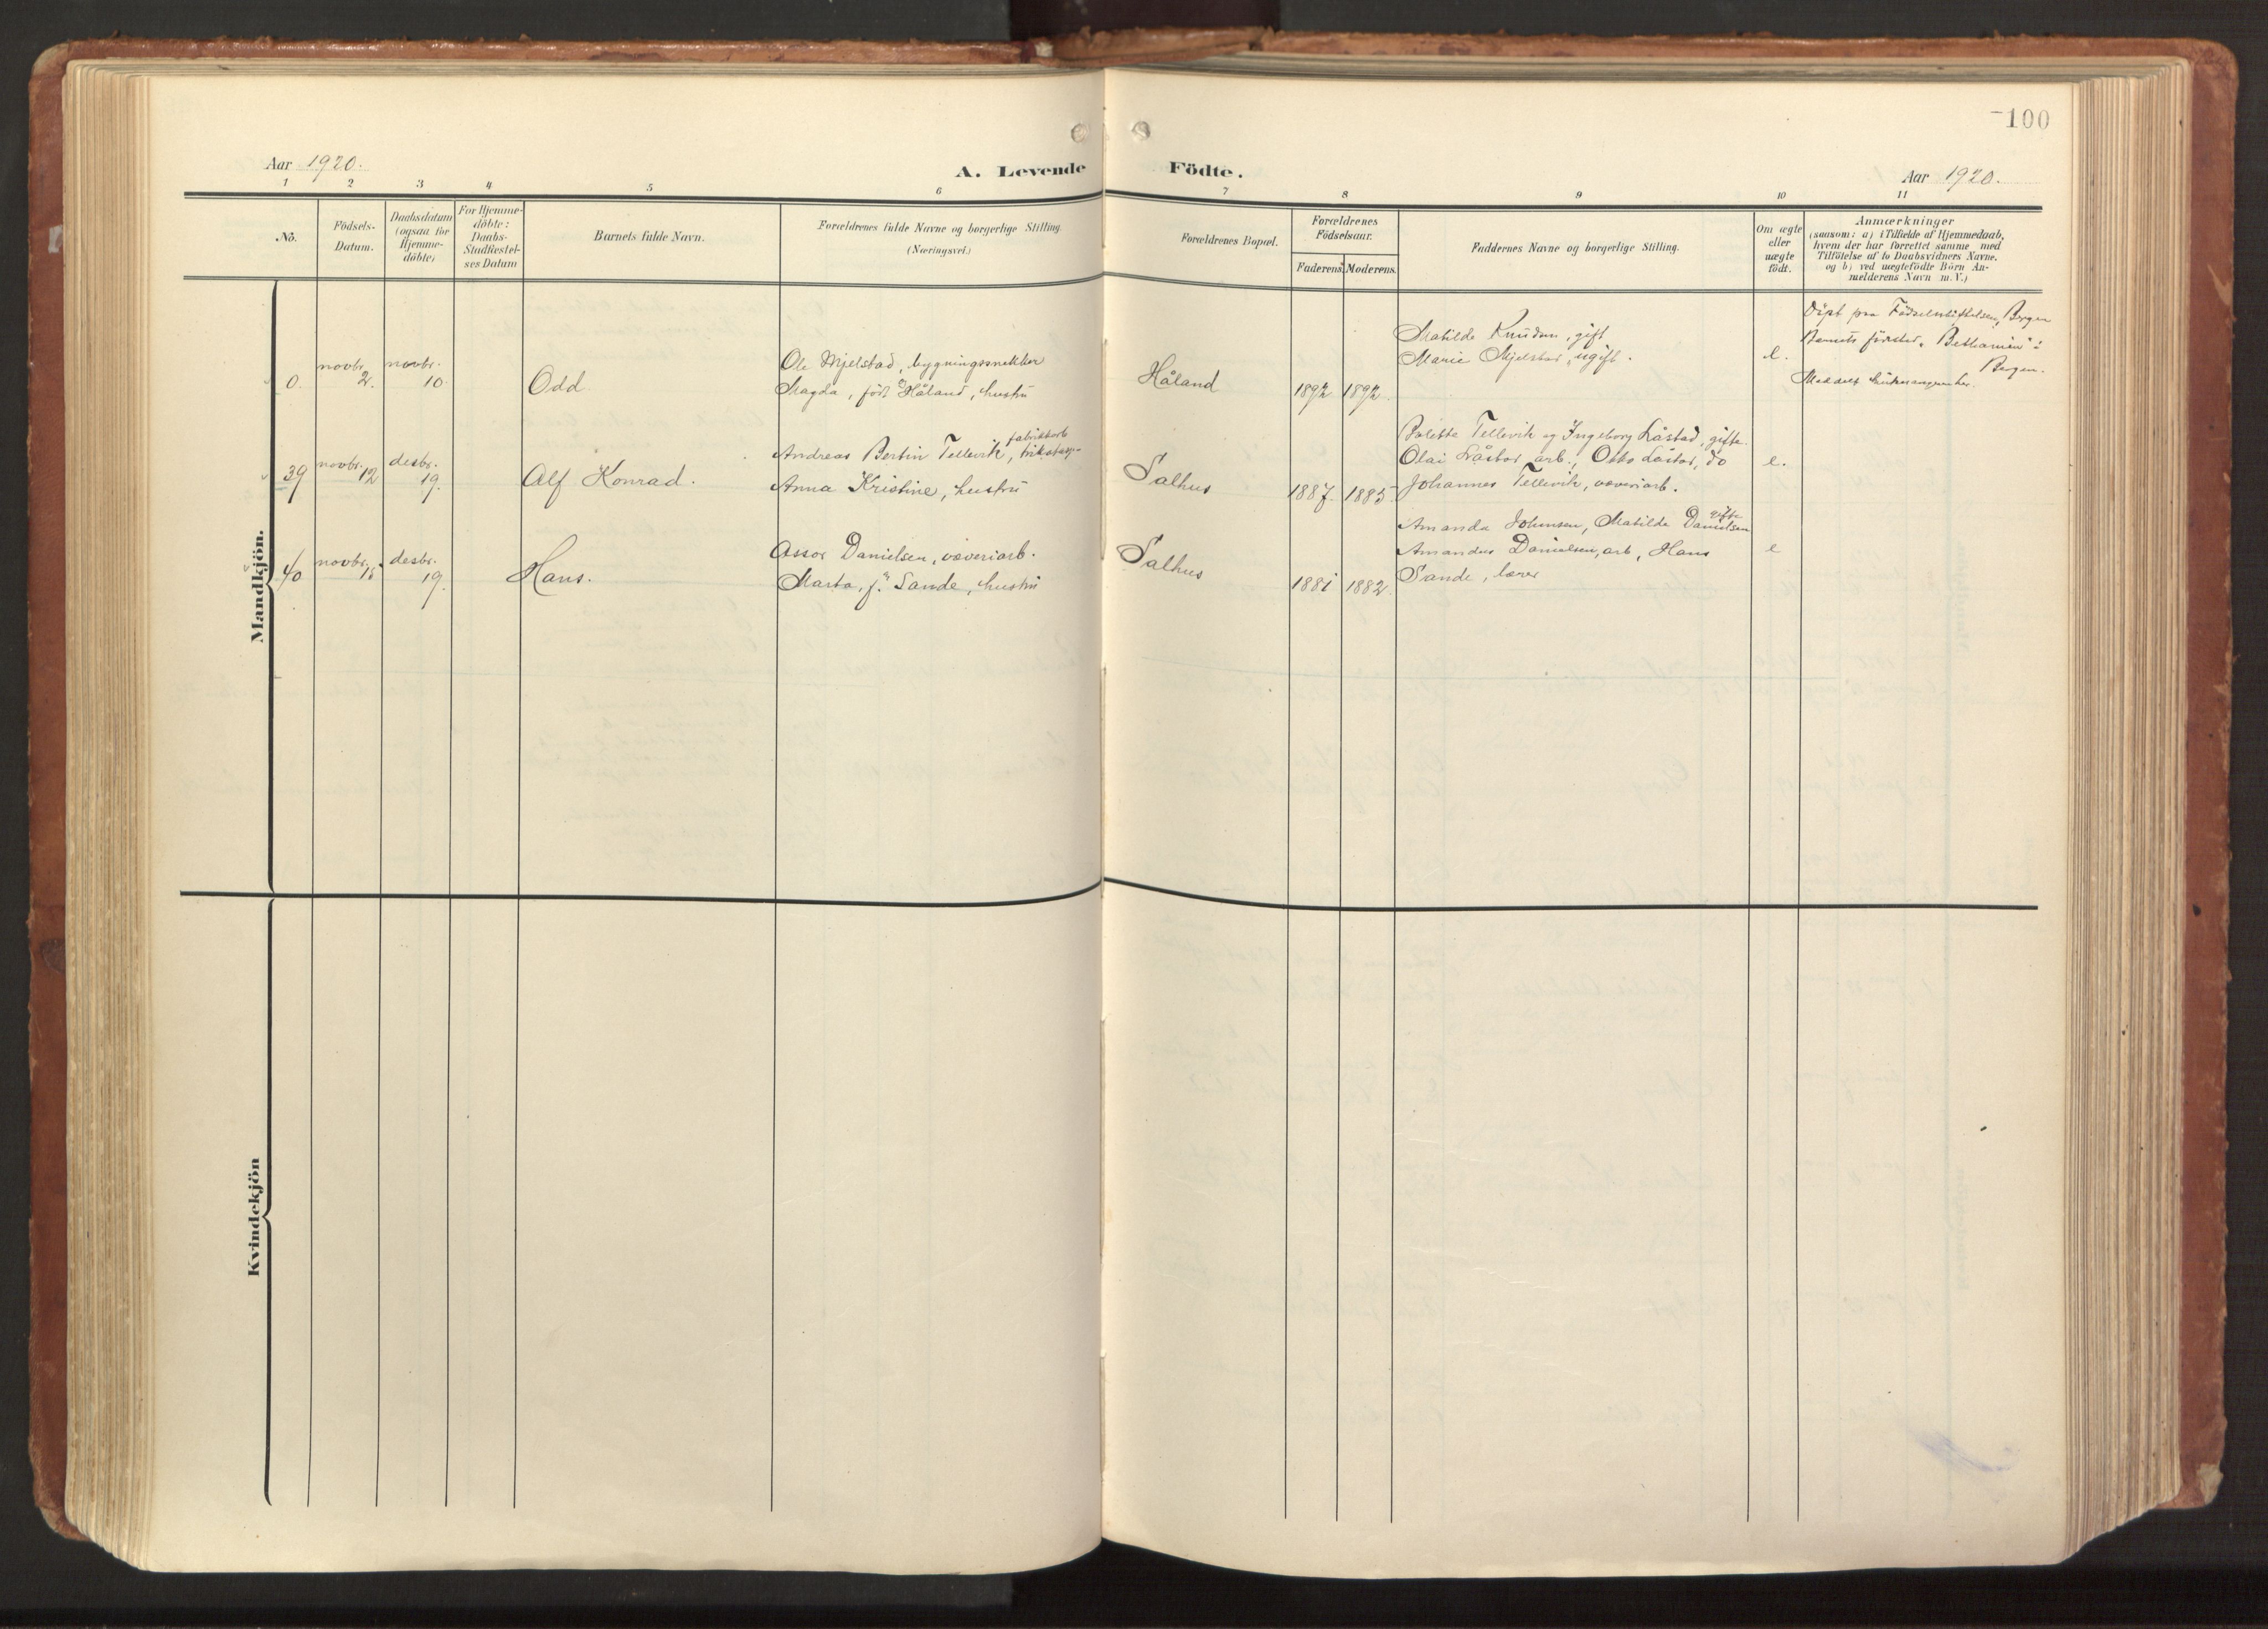 100
Aar 1920.
A. Levende Födte.
Aar 1920.
1 2 3 4 5 6 7 8 9 10 11
No.
Födsels-
Datum.
Daabsdatum
(ogsaa for
Hjemme-
döbte)
For Hjemme-
döbte:
Daabs-
Stadfæstel-
ses Datum
Barnets fulde Navn.
Forældrenes fulde Navne og borgerlige Stilling
(Næringsvei.)
Forældrenes Bopæl.
Forældrenes
Födselsaar.
Faderens. Moderens.
Faddernes Navne og borgerlige Stilling.
Om ægte
eller
uægte
födt.
Anmærkninger
(saasom: a) i Tilfælde af Hjemmedaab,
hvem der har forrettet samme med
Tilföielse af to Daabsvidners Navne.
og b) ved uægtefödte Börn An-
melderens Navn m. V.)
Mandkjön.
0.
novbr.
2.
novbr.
10.
Odd.
Ole Mjelstad, bygningssnekker
Magda, født Håland, hustru
Håland
1892 1892
Matilde Knudsen, gift
Marie Mjelstad, ugift.
e.
Døpt paa Fødselsstiftelsen, Bergen
prester, "Bethanien" i
Bergen.
39
novbr.
12
desbr.
19.
Alf Konrad.
fabrikkarb
Andreas Bertin Tellevik,
Anna Kristine, hustru
Salhus
1887. 1885
Tellevik og Ingeborg Låstad, gifte.
Olai Låstad arb., Otto Låstad, do
Johannes Tellevik, væveriarb.
e.
40
novbr.
desbr.
19.
Hans.
Assor Danielsen, væveriarb.
Marta, f. Sande, hustru
Salhus
1881 1882.
gifte
Amanda Johnsen, Matilde Danielsen
Amandus Danielsen, arb, Hans
Sande, lærer
e
Kvindekjön